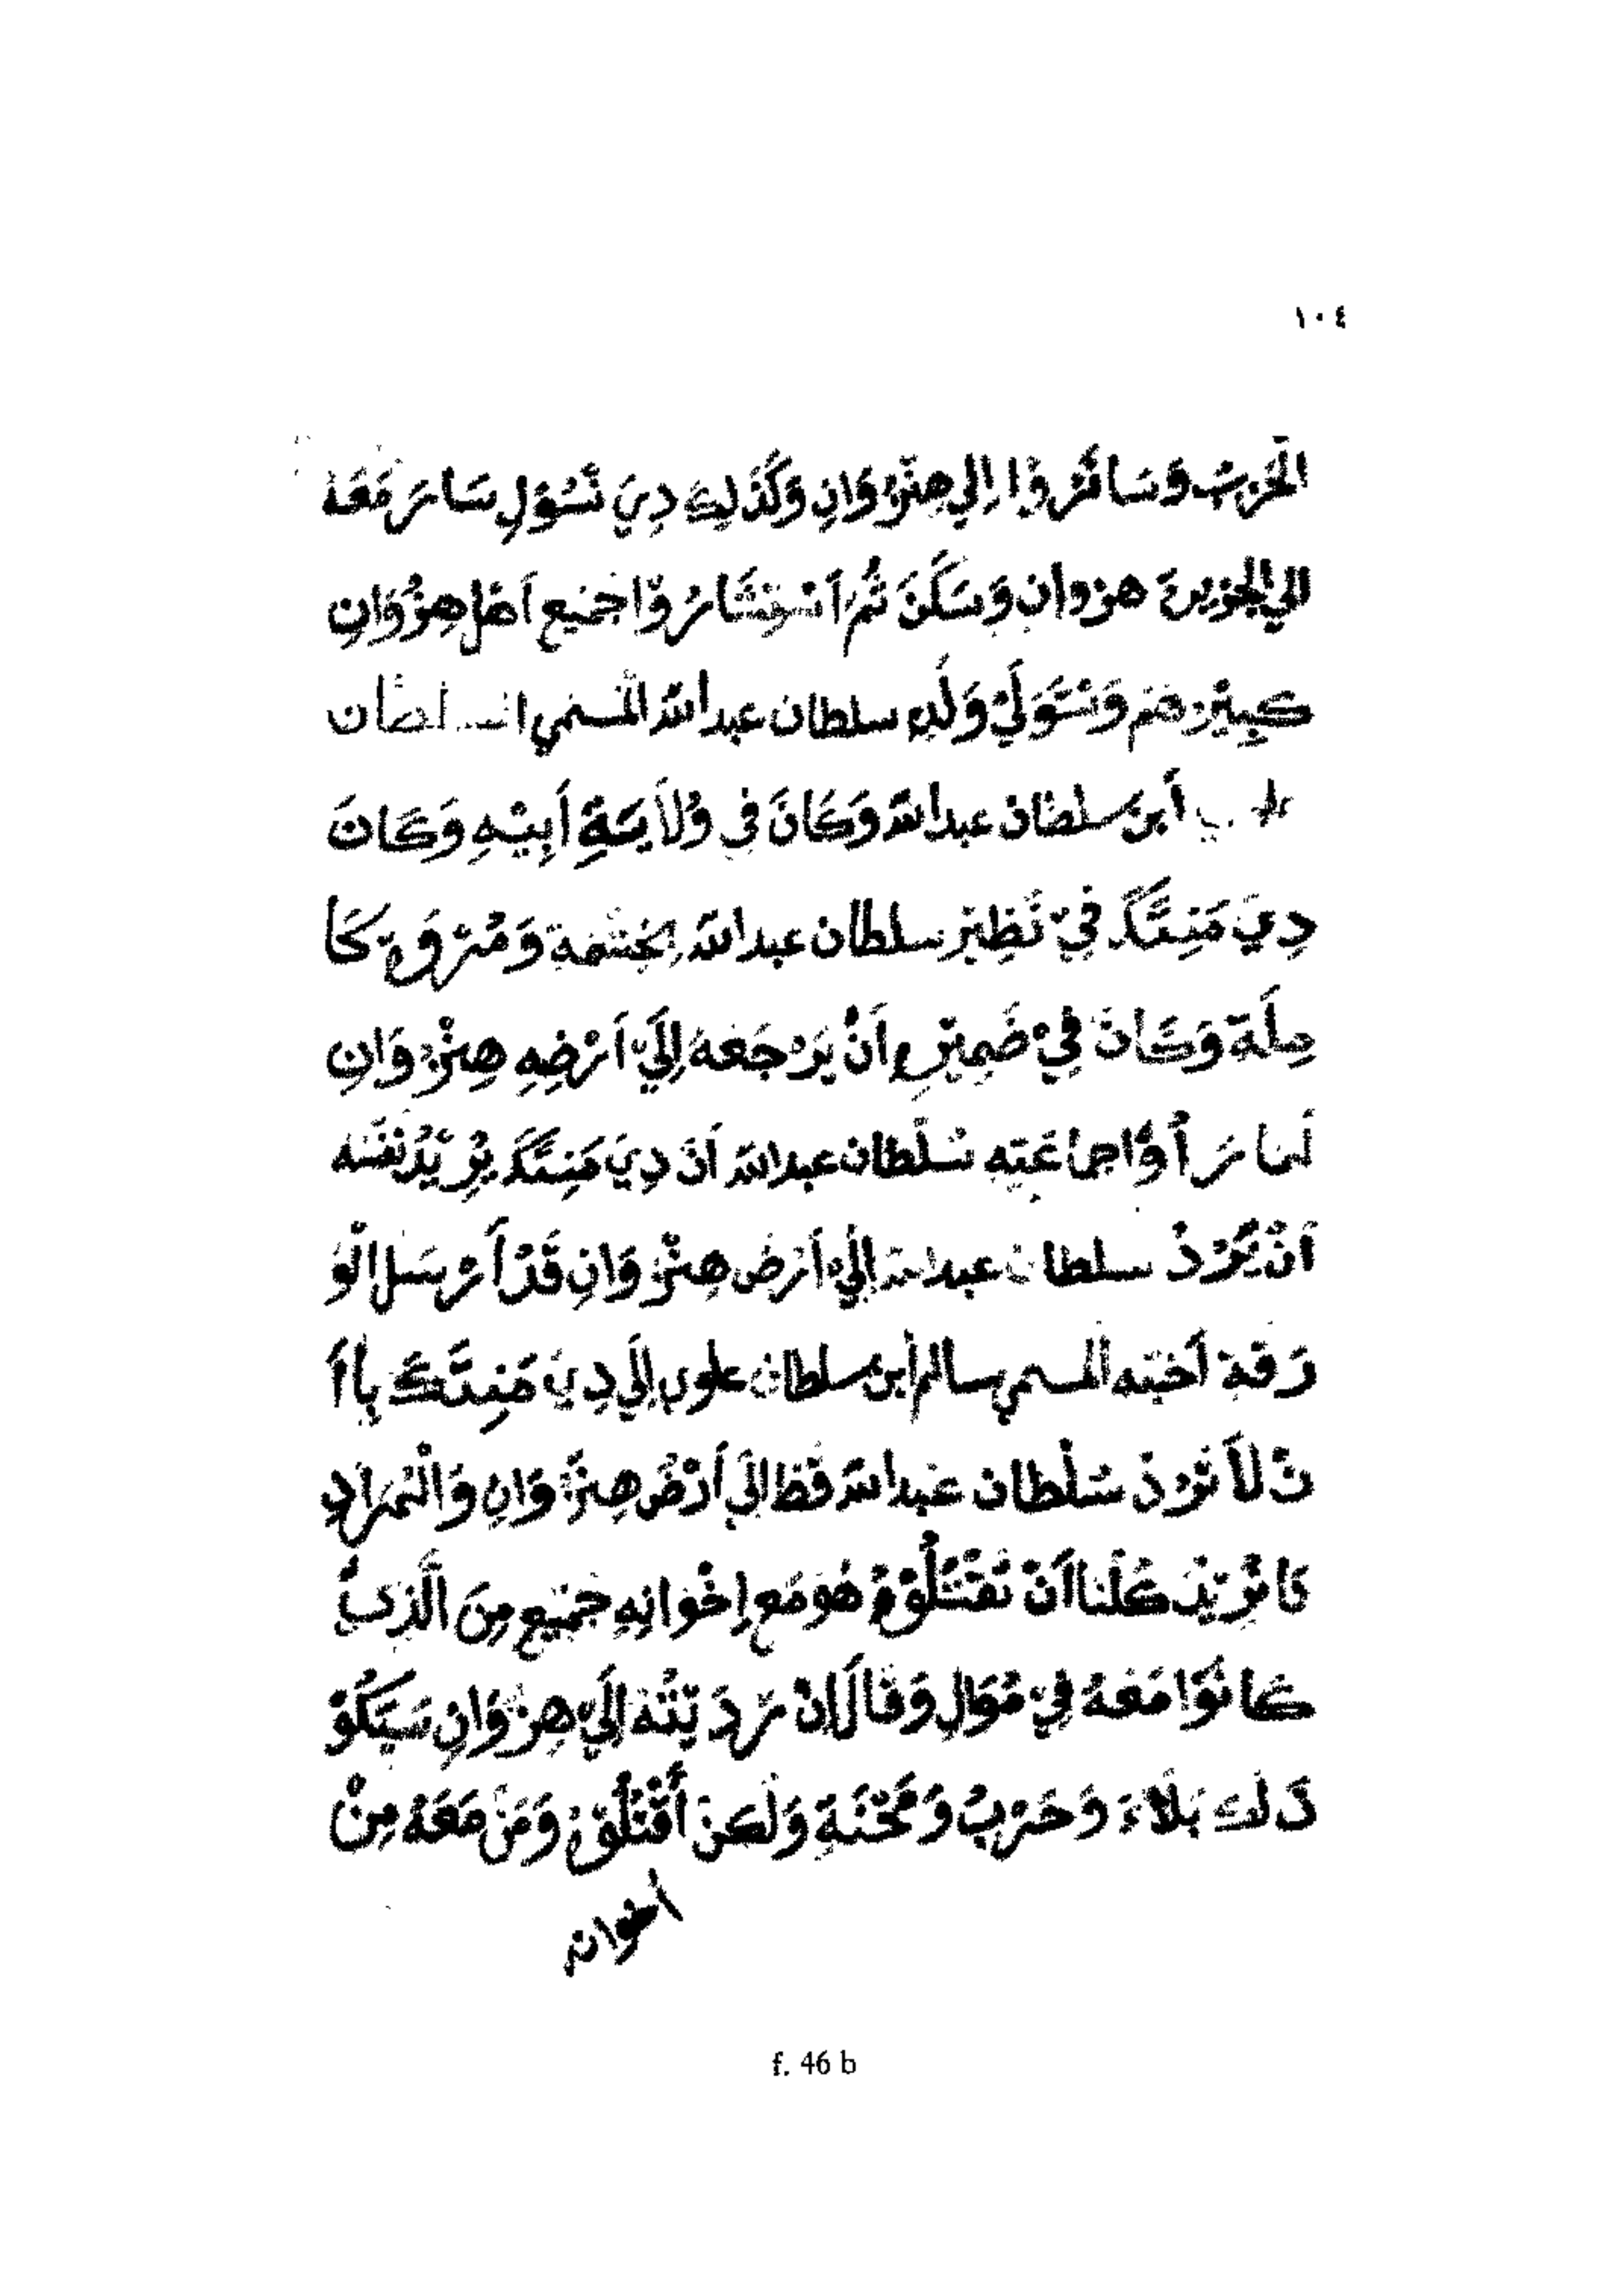 ١٠٤
الحَرْبُ وَسَافَرُوا إِلي هِنْزُوَانِ وَكَذَلِكَ دِيَ نَسُوَلِ سَارَ مَعَهُ
الي الجزيرة هنزوان وَسَكَنَ ثُمَّ اَسْتَشَارُوْا جَمِيْع اَهْل هِنْزُوَانِ
كبِيْرهُمْ وَتَوَلَيْ وَلَدِهِ سلطان عبد الله المسمي السلطان
أبن سلطان عبد الله وَكَانَ في وُلاَيَةِ أَبِيْهِ وَكَانَ
دِيَ مَنِتَّكَ فِيْ نَظِيْرِ سلطان عبد الله بِحَشْمَةِ وَمُرُوَةٍ كَا
مِلَة وَكَانَ فِيْ ضَمِيْرِهِ اَنْ يَرْجَعهُ إِلَيْ اَرْضِهِ هِنْزُوَانِ
لما رَأَوْا جماعَتِهِ سُلْطَان عبد الله اَنَ دِيَ مَنِتَّكَ يُرِيْدُ نفسَه
اَنْ يَرُدْ سلطان عبد الله إِليْ اَرْضِ هِنْزُوَانِ قَدْ اَرْسَل الوَ
رَقة اَخيه المسمي سالم ابن سلطان علوي إِلَي دِيَ مَنِتَّكَ بِاَ
نْ لاَ تَرُدْ سُلْطَان عَبد الله قط الِيَ أَرْضِ هِنْزُوَانِ وَالْمُرَادِ
نَا نُرِيْدُ كُلّنا اَنْ نَقْتُلُوْهُ هُوَ مَع إِخْوَانِهِ جَمِيْع مِنَ الَّذِيْ
كَانُوْا مَعَهُ فِيْ مُوَالِ وَقَالَ اِنْ رَدَيْتُهُ إِلَيْ هِنْزُوَانِ سَيَكُوْ
ذَلك بَلاَءَ وَحَرْبُ وَمِحْنَةِ وَلَكن أُقْتُلُوْهُ وَمَنْ مَعَهُ مِنْ
اخوانه
f. 46 b